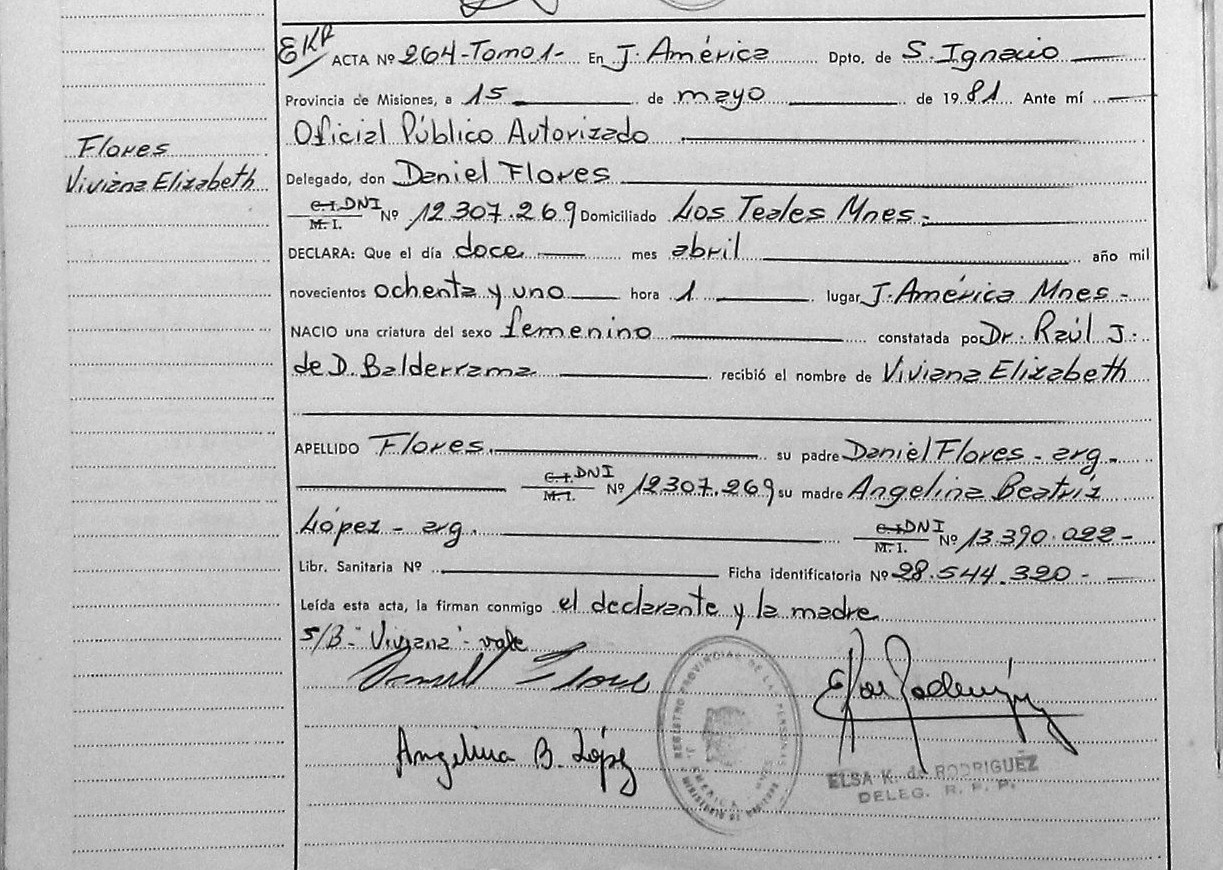 EKR ACTA Nº 264-Tomo 1- En J. América Dpto. de S. Ignacio
Provincia de Misiones, a 15 de mayo de 1981 Ante mí
Oficial Público Autorizado
Flores
Viviana Elizabeth
Delegado, don Daniel Flores
C.I. DNI
M. I. Nº 12.307.269 Domiciliado Los Teales Mnes-
DECLARA: Que el día doce mes abril año mil
novecientos ochenta y uno hora 1 lugar J. América Mnes-
NACIO una criatura del sexo femenino constatada por Dr. Raúl J.
de D. Balderrama recibió el nombre de Viviana Elizabeth
APELLIDO Flores. su padre Daniel Flores - arg-
C.I. DNI
M. I. Nº 12307.269 su madre Angelina Beatriz
López - arg. C.I. DNI
M. I. Nº 13.390.022-
Libr. Sanitaria Nº Ficha identificatoria Nº 28.544.320-
Leída esta acta, la firman conmigo el declarante y la madre
S/B "Viviana" - vale
Angelina B. López
REGISTRO PROVINCIAL DE LAS PERSONAS
J. AMERICA
ELSA K. de RODRIGUEZ
DELEG. R. P. P.